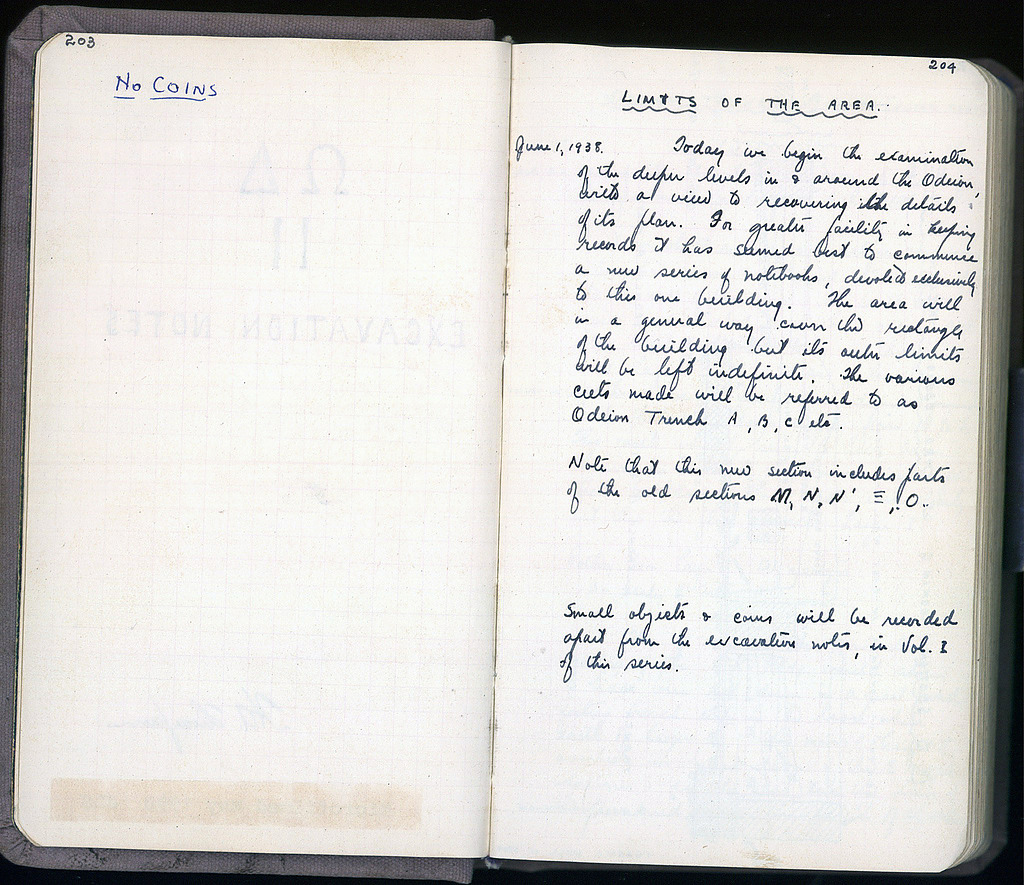 203
No COINS
204
LIMITS OF THE AREA.
June 1, 1938. Today we begin the examination
of the deeper levels in & around the Odeion,
with a view to recovering the details
of its plan. For greater facility in keeping
records it has seemed best to commence
a new series of notebooks, devoted exclusively
to this one building. The area will
in a general way cover the rectangle
of the building but its outer limits
will be left indefinite. The various
cuts made will be referred to as
Odeion Trench A, B, C etc.
Note that this new section includes parts
of the old sections M, N, N', Ξ, O.
Small objects & coins will be recorded
apart from the excavation notes, in Vol. I
of this series.